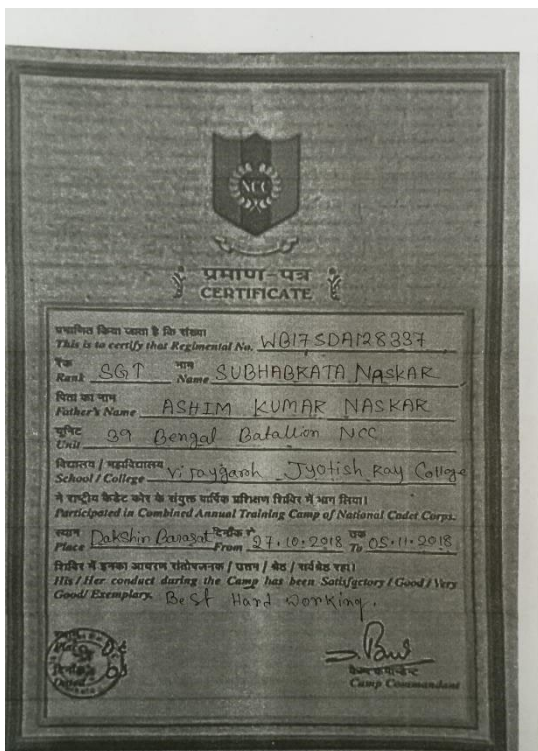 NCC
प्रमाण-पत्र
CERTIFICATE
प्रमाणित किया जाता है कि संख्या
This is to certify that Regimental No. WB17SDA128337
रैंक नाम
Rank SGT Name SUBHABRATA NASKAR
पिता का नाम
Father's Name ASHIM KUMAR NASKAR
यूनिट
Unit 39 Bengal Batallion NCC
विद्यालय / महाविद्यालय
School / College Vijaygarh Jyotish Ray College
ने राष्ट्रीय कैडेट कोर के संयुक्त वार्षिक प्रशिक्षण शिविर में भाग लिया।
Participated in Combined Annual Training Camp of National Cadet Corps.
स्थान दिनाँक से तक
Place Dakshin Barasat From 27.10.2018 To 05.11.2018
शिविर में इनका आचरण संतोषजनक / उत्तम / श्रेष्ठ / सर्वश्रेष्ठ रहा।
His / Her conduct during the Camp has been Satisfactory / Good / Very
Good / Exemplary. Best Hard working.
स्थान
Place
दिनाँक
Dated
कैम्प कमान्डेन्ट
Camp Commandant